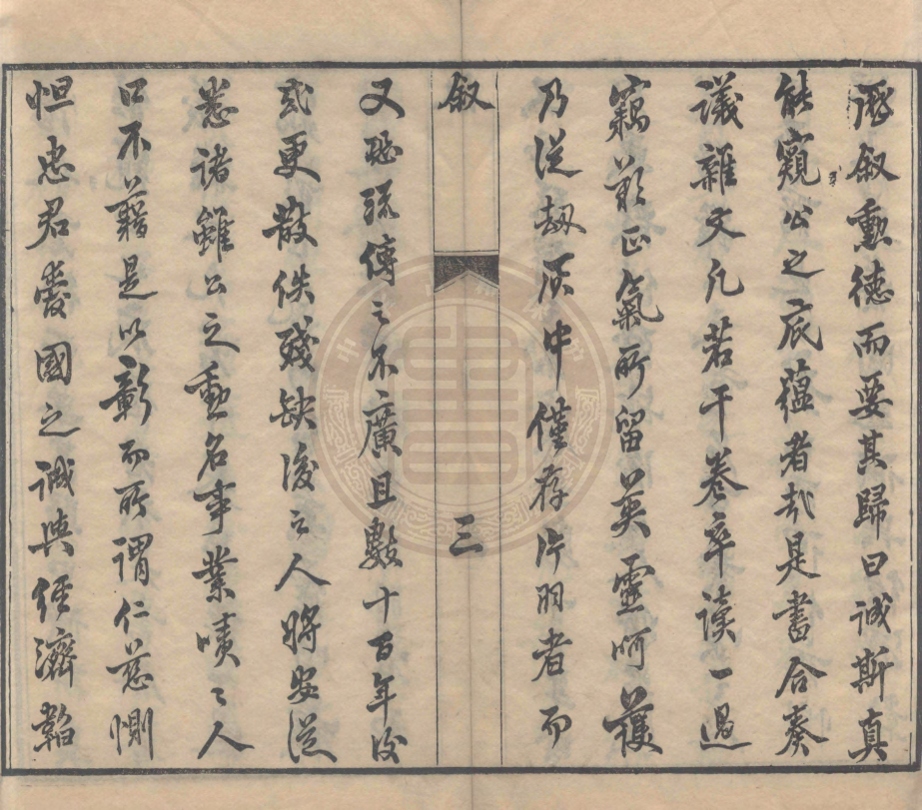 歷叙勳德而要其歸曰誠斯真
能窺公之底蘊者哉是書合奏
議雜文凡若干卷卒读一過
竊歎正氣所留英靈呵護
乃從劫灰中僅存片羽者而
叙
三
又恐流傳之不廣且數十百年後
或更散佚殘缺後之人將安從
悉諸雖公之勳名事業嘖〻人
口不藉是以彰而所謂仁慈惻
怛忠君愛國之诚與经濟韜